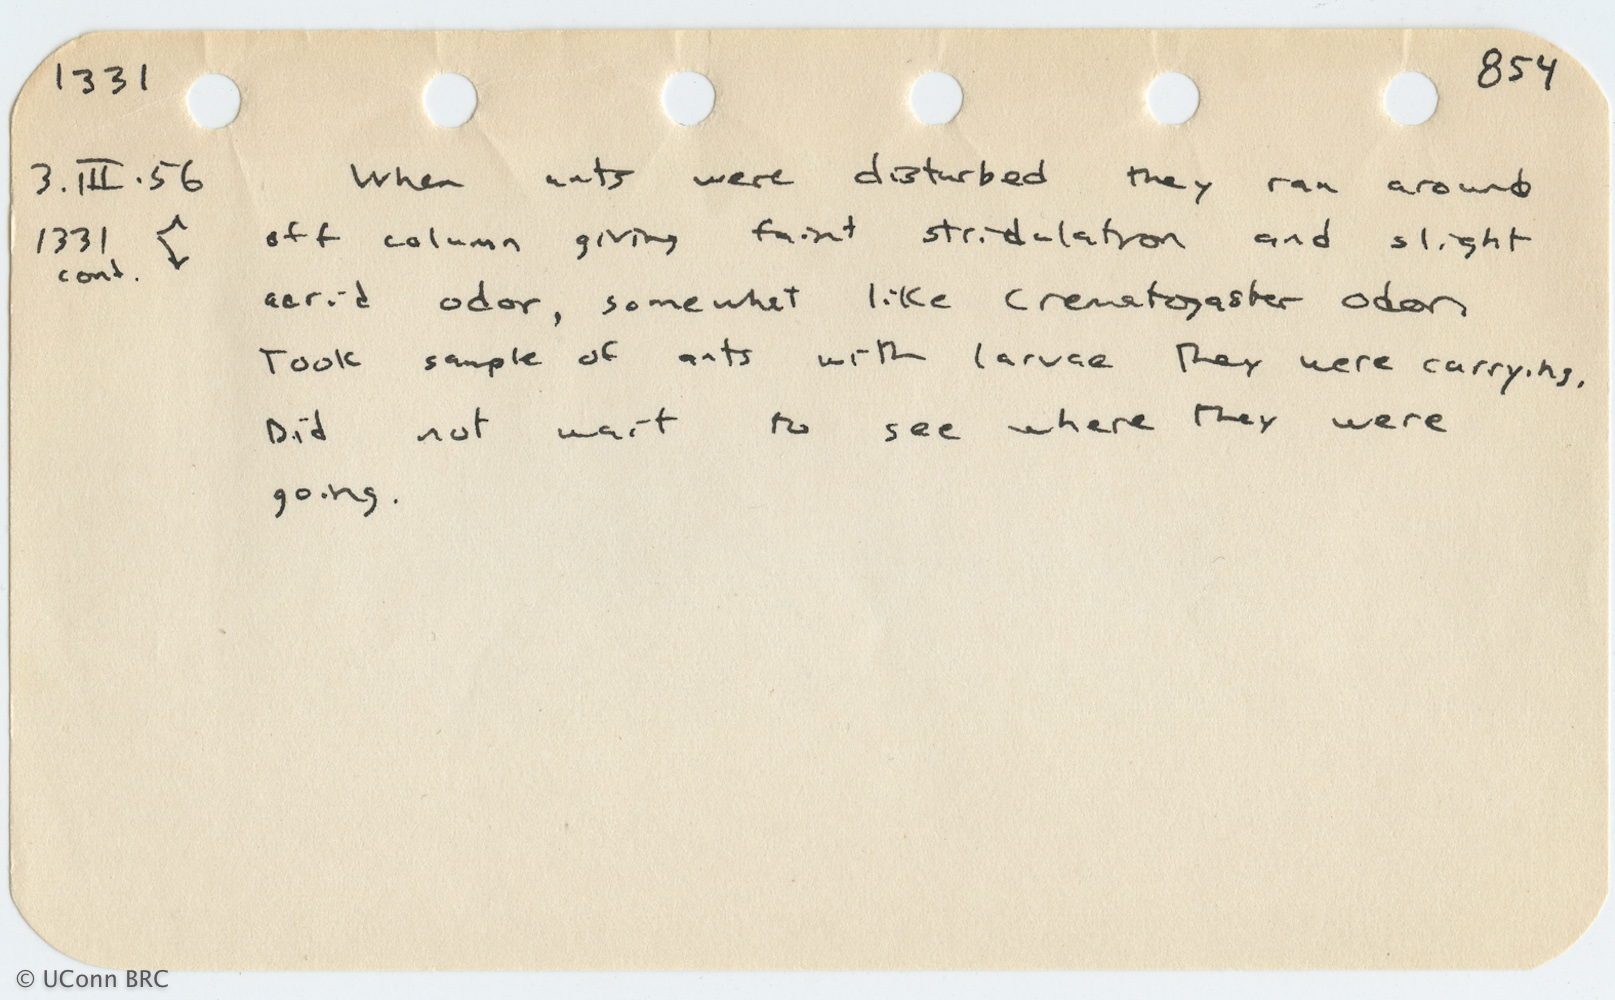 1331 854
3.III.56 When ants were disturbed they ran around
1331 off column giving faint stridulation and slight
cont.
acrid odor, somewhat like Crematogaster odor,
Took sample of ants with larvae they were carrying.
Did not wait to see where they were
going.
© UConn BRC